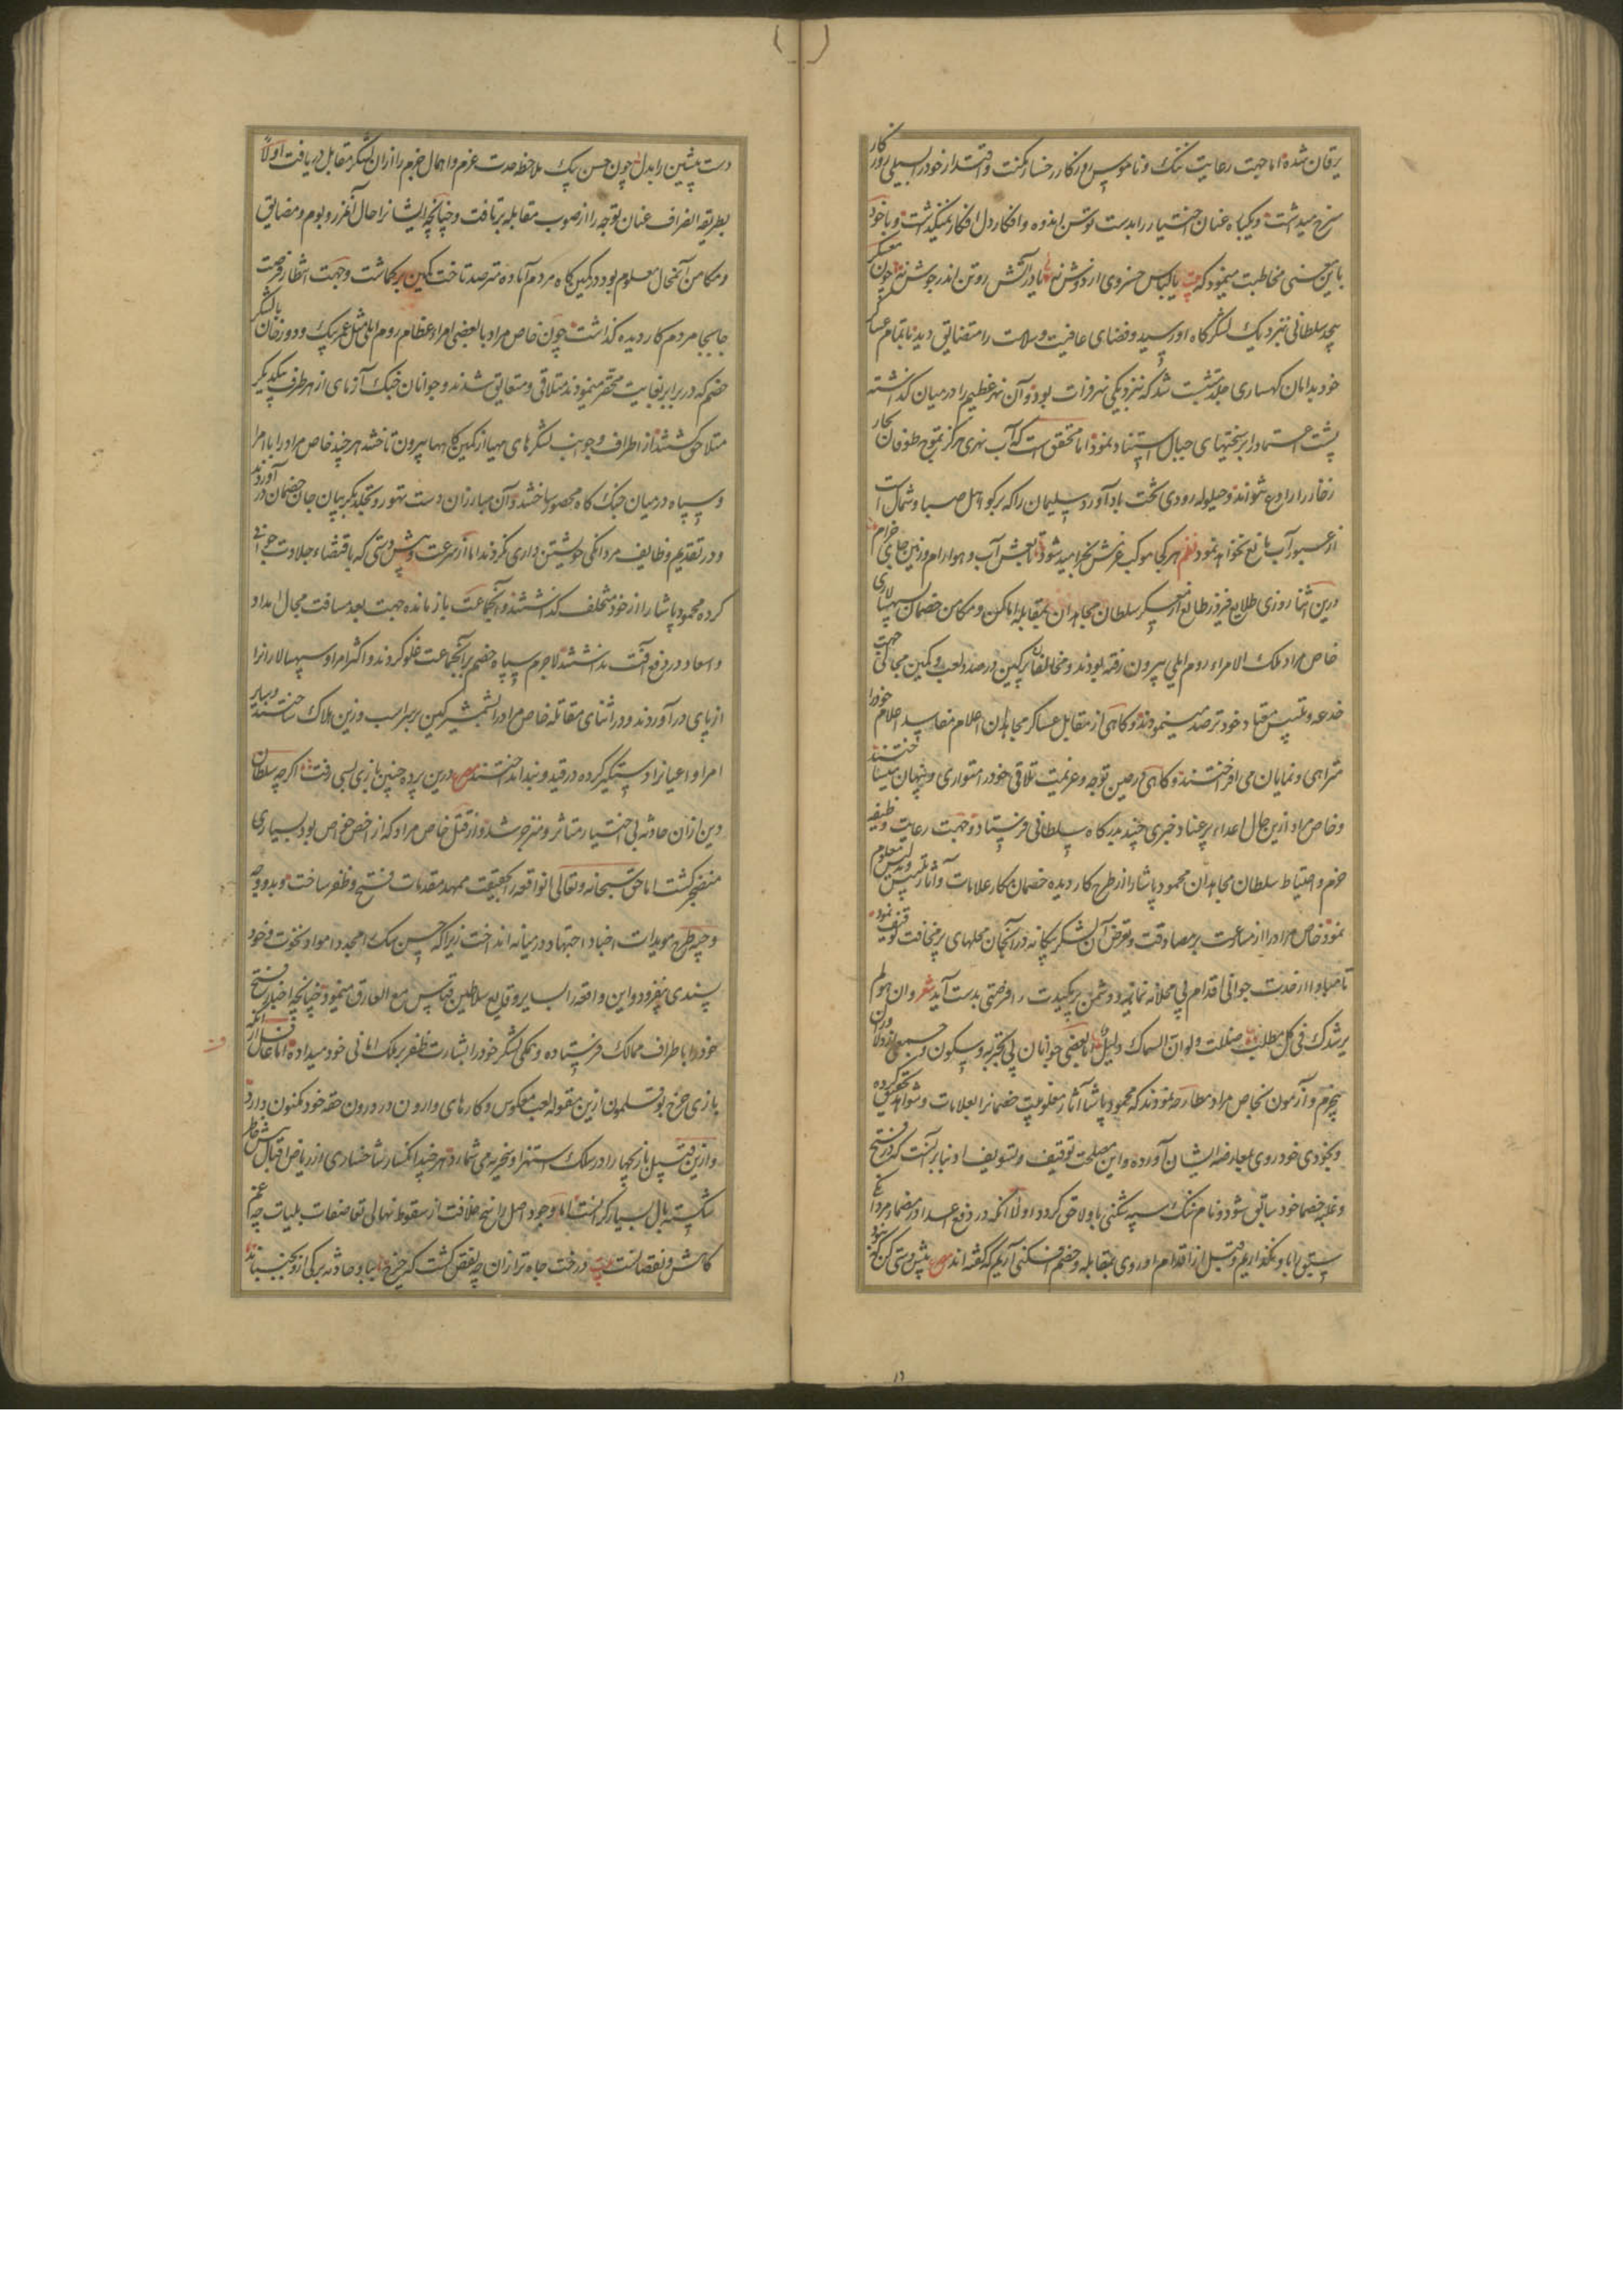 یرقان شده اما جهت رعایت ننک و ناموس روزکار رخسار مکنت و اقتدار خود را بسیلی روزکار
سرخ میداشت و یکباه عنان اختیار را بدست توسن اندوه و افکار دل افکار نمیکذاشت و با خود
باین معنی مخاطبت مینمود که بیت یا لباس خسروی از دوش نه یا در آتش رو تن اندر جوش نه چون معسکر
سلطانی بنزدیک لشکرکاه او رسید و فضای عافیت و سلامت را متضایق دید با تمام عساکر
خود بدامان کهساری متشبث شد که بنزدیکی نهر فرات بود و آن نهر عظیم را در میان کذاشته
پشت استمداد بر سختیهای جبال استناد نمود اما محقق است که آب نهری هرکز تموج طوفان بحار
زخار را رادع نتواند و حیلوله رودی تخت بادآورد سلیمان را که بر صبا و شمال است
از عبور آب مانع نخواهد نمود نظم هر کجا موکب عزمش بخرامید شود تابعش آب و هوا رام و زمین جای خرام
درین اثنا روزی طلایع فیروز طالع از معسکر سلطان مجاهدان بمقابله اماکن و مکامن خصمان بسپهسالاری
خاص مراد ملک الامراء روم ایلی بیرون رفته بودند و مخالفان پر کین در صدد لعب و کمین بجهت
خدعه و تلبیس معتاد خود ترصد مینمودند و کاهی از مقابل عساکر مجاهدان اعلام مفاسد اعلام خود را
مترائی و نمایان می افراختند و کاهی در عین توجه و عزیمت تلاقی خود را متواری و پنهان میساختند
و خاص مراد ازین حال اعداء پر عناد خبری چند بدرکاه سلطانی فرستاد و جهت رعایت وظیفه
حزم و احتیاط سلطان مجاهدان محمود پاشا را از طرح کار دیده خصمان کار علامات و آثار تلبیس و تدلیس معلوم
نمود خاص مراد را از مسارعت بر مصادفت و تعرض آن لشکر بیکانه در آنچنان محلهای پر مخافت توقیف نمود
تا مبادا از حدت جوانی اقدام بی محلانه نماید و دشمن پر کید را فرصتی بدست آید شعر و ان هو لم
یرشدک فی کل مطلب ضللت ولو ان السماک دلیل اما بعضی جوانان بی تجربه و سکون و جمعی از دلاوران
بیحزم و آزمون بخاص مراد مطارحه نمودند که محمود پاشا آثار مغلوبیت خصمانرا بعلامات و شواهد تحقیق کرده
و بخودی خود روی بمعارضه ایشان آورده و این مصلحت توقیف و تسویف او بنا بر آنست که در فتح
و غلبه خصما خود سابق شود و نام ننک سپه شکنی باو لاحق کردد اولا آنکه در دفع اعدا در مضمار مردانکی
سبق را باو نکذاریم و قبل از اقدام او روی بمقابله و خصم افکنی آریم که کفته اند مصرع پیش دستی کن
دست پیشین را بدل چون حسن بیک ملاحظه حدت عزم و اهمال حزم را از ان لشکر مقابل دریافت اولا
بطریقه انصراف عنان توجه را از صوب مقابله برتافت و چنانچه ایشانرا حال آنمرز و بوم و مضایق
و مکامن آنمحال معلوم بود در کمین کاه مردم آماده مترصد تاخت کمین بر کماشت و جهت انتظار فرصت
جابجا مردم کار دیده کذاشت چون خاص مراد با بعضی امراء عظام روم ایلی مثل عمر بیک و دورخان با لشکر
خصم که در برابر بغایت محقر مینمودند متلاقی و متعانق شدند و جوانان جنک آزمای از هر طرف بیکدیکر
متلاحق کشتند از اطراف و جوانب لشکرهای مهیا از کمین کاهها بیرون تاختند هر چند خاص مراد را با امرا
و سپاه در میان جنک کاه محصور ساختند و آن مبارزان دست تهور و تجلد بکریبان جان خصمان در آوردند
و در تقدیم وظایف مردانکی خویشتن داری نکردند اما از سرعت و پیش دستی که باقتضاء جلادت جوانی
کرده محمود پاشا را از خود متخلف کذاشتند و آنجماعت باز مانده جهت بعد مسافت مجال امداد
و اسعاد در دفع آفت نداشتند لاجرم سپاه خصم بر آنجماعت غلو کردند و اکثر امرا و سپهسالارانرا
از پای در آوردند و در اثنای مقاتله خاص مراد را بشمشیر کین بر سر اسب و زین هلاک ساختند و بسیار
امرا و اعیانرا دستکیر کرده در قید و بند انداختند مصرع درین پرده چنین بازی بسی رفت اکرچه سلطان
دین از ان حادثه بی اختیار متاثر و منزجر شد و از قتل خاص مراد که از اخص خواص بود بسیاری
منضجر کشت اما حق سبحانه و تعالی آنواقعه را بحقیقت ممهد مقدمات فتح و ظفر ساخت و بدو وجه
وجیه طرح مویدات اجتهاد در میانه انداخت زیرا که حسن بیک را مجددا مواد نخوت و خود
پسندی بیفزود و این واقعه را بسایر وقایع سلاطین قیاس مع الفارق مینمود چنانچه اخبار فتح
خود را باطراف ممالک فرستاده و همکی لشکر خود را بشارت ظفر بر ملک امانی خود میداده اما غافل از آنکه
بازی چرخ بوقلمون ازین مقوله لعب معکوس و کارهای وارون در درون حقه خود مکنون دارد
و ازین قبیل بازیچها را در سلک استهزا و سخریه می شمارد هر چند انکسار شاخساری از ریاض اقبالش خاطر
شکسته بال بسیار کرانست اما وجود اصل راسخ خلافت از سقوط نهالی تعاصفات بلیات چه غم
کاهش و نقصانست بیت درخت جاه ترا زان چه نقص کشت که چرخ بباد حادثه برکی ازو بجنباند